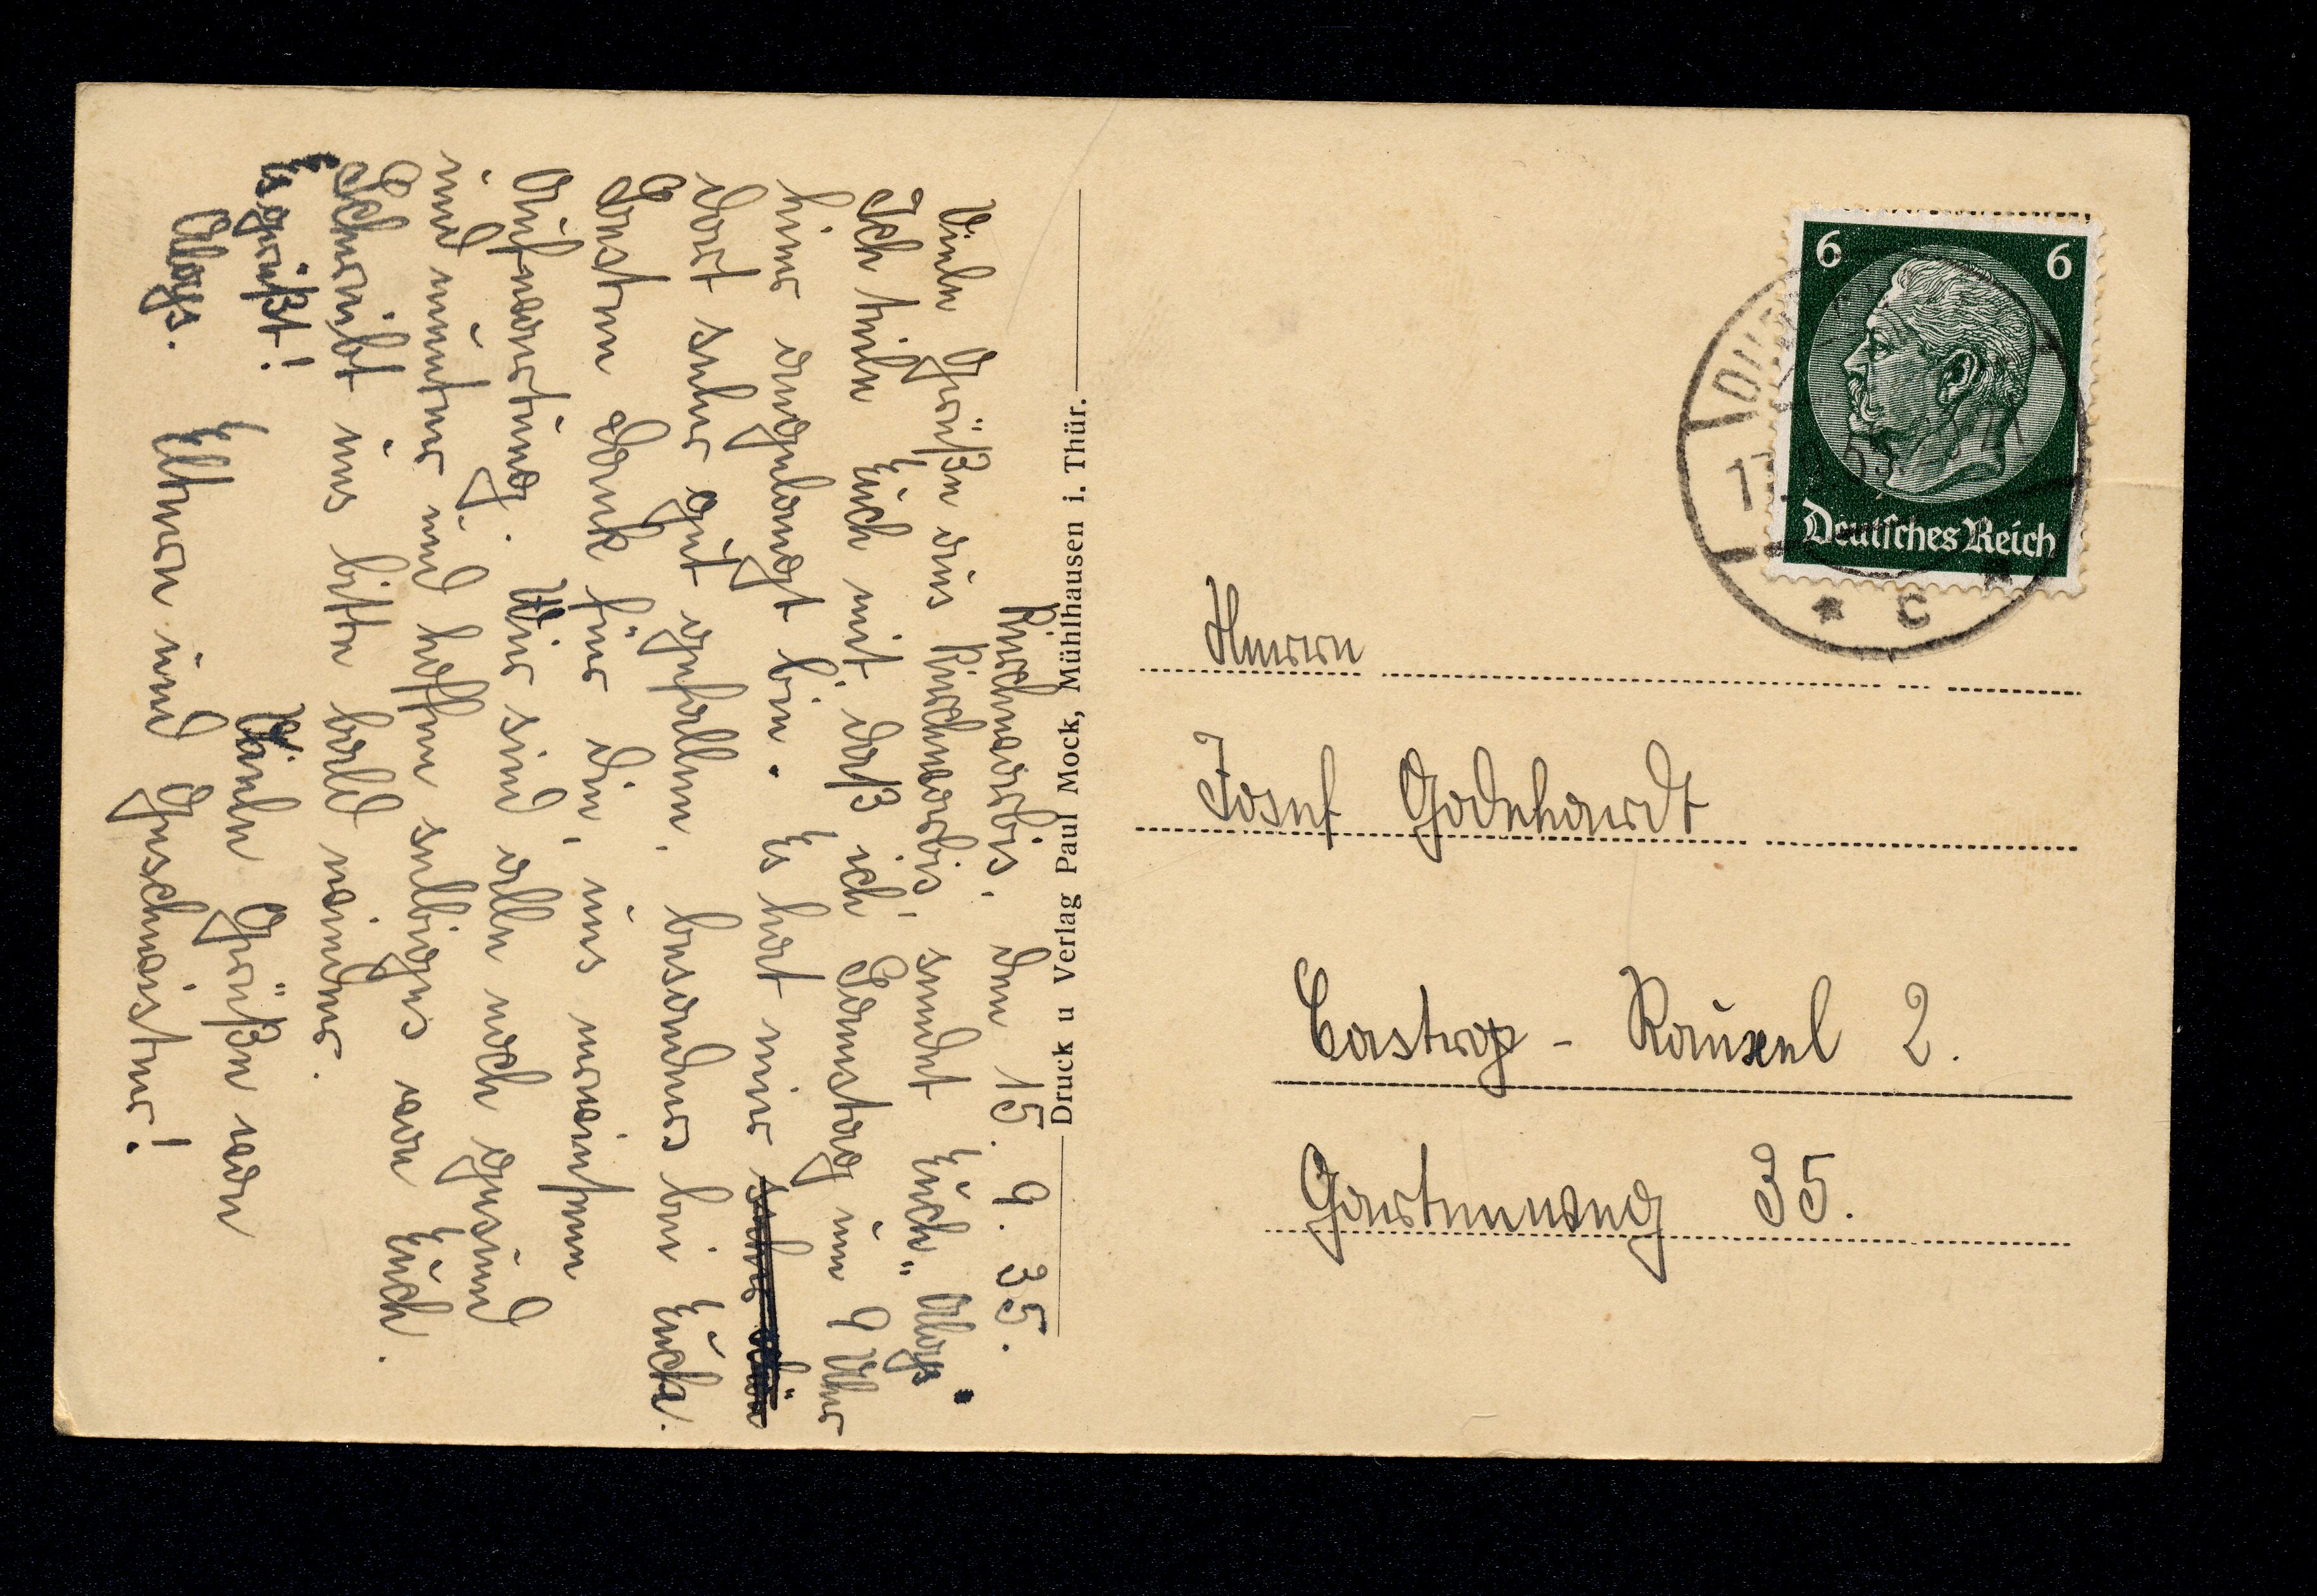 Kirchworbis, den 15. 9. 35.
Viele Grüße aus Kirchworbis, sendet Euch" Aloys.
Ich teile Euch mit, daß ich Samstag um 9 Uhr
hier angelangt bin. Es hat mir sehr schön
dort sehr gut gefallen, besonders bei Euch.
Besten Dank für die, uns erwiesene
Aufwartung. Wir sind alle noch gesund
und munter und hoffen selbiges von Euch.
Schreibt uns bitte bald wieder.
Es grüßt! Viele Grüße von
Aloys. Eltern und Geschwister!
Druck u Verlag Paul Mock, Mühlhausen i. Thür.
6 6
Deutsches Reich
C
Herrn
Josef Godehardt
Castrop-Rauxel 2.
Gartenweg 35.